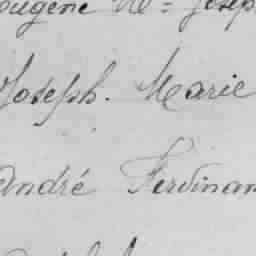 Eugène M = Josep
Joseph. Marie
André Ferdinan